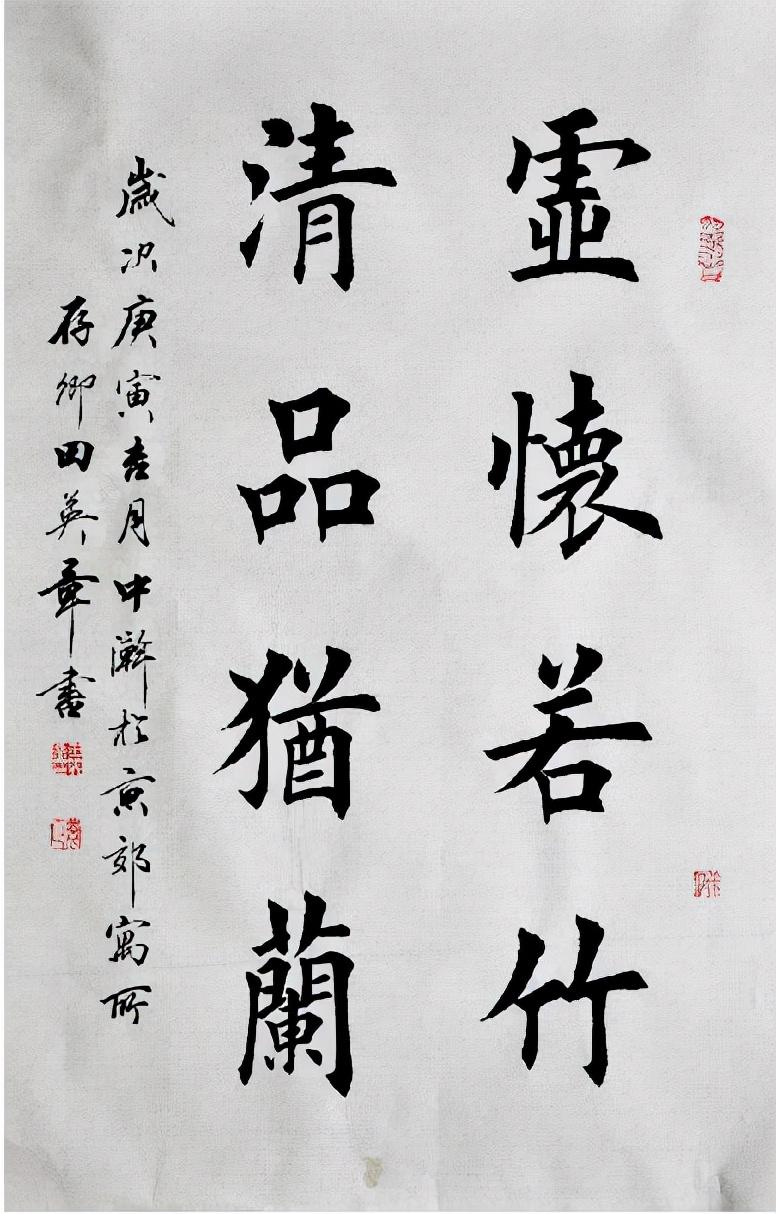 虛懷若竹
清品猶蘭
歲次庚寅月中澣於京郊寓所
存卿田英章書